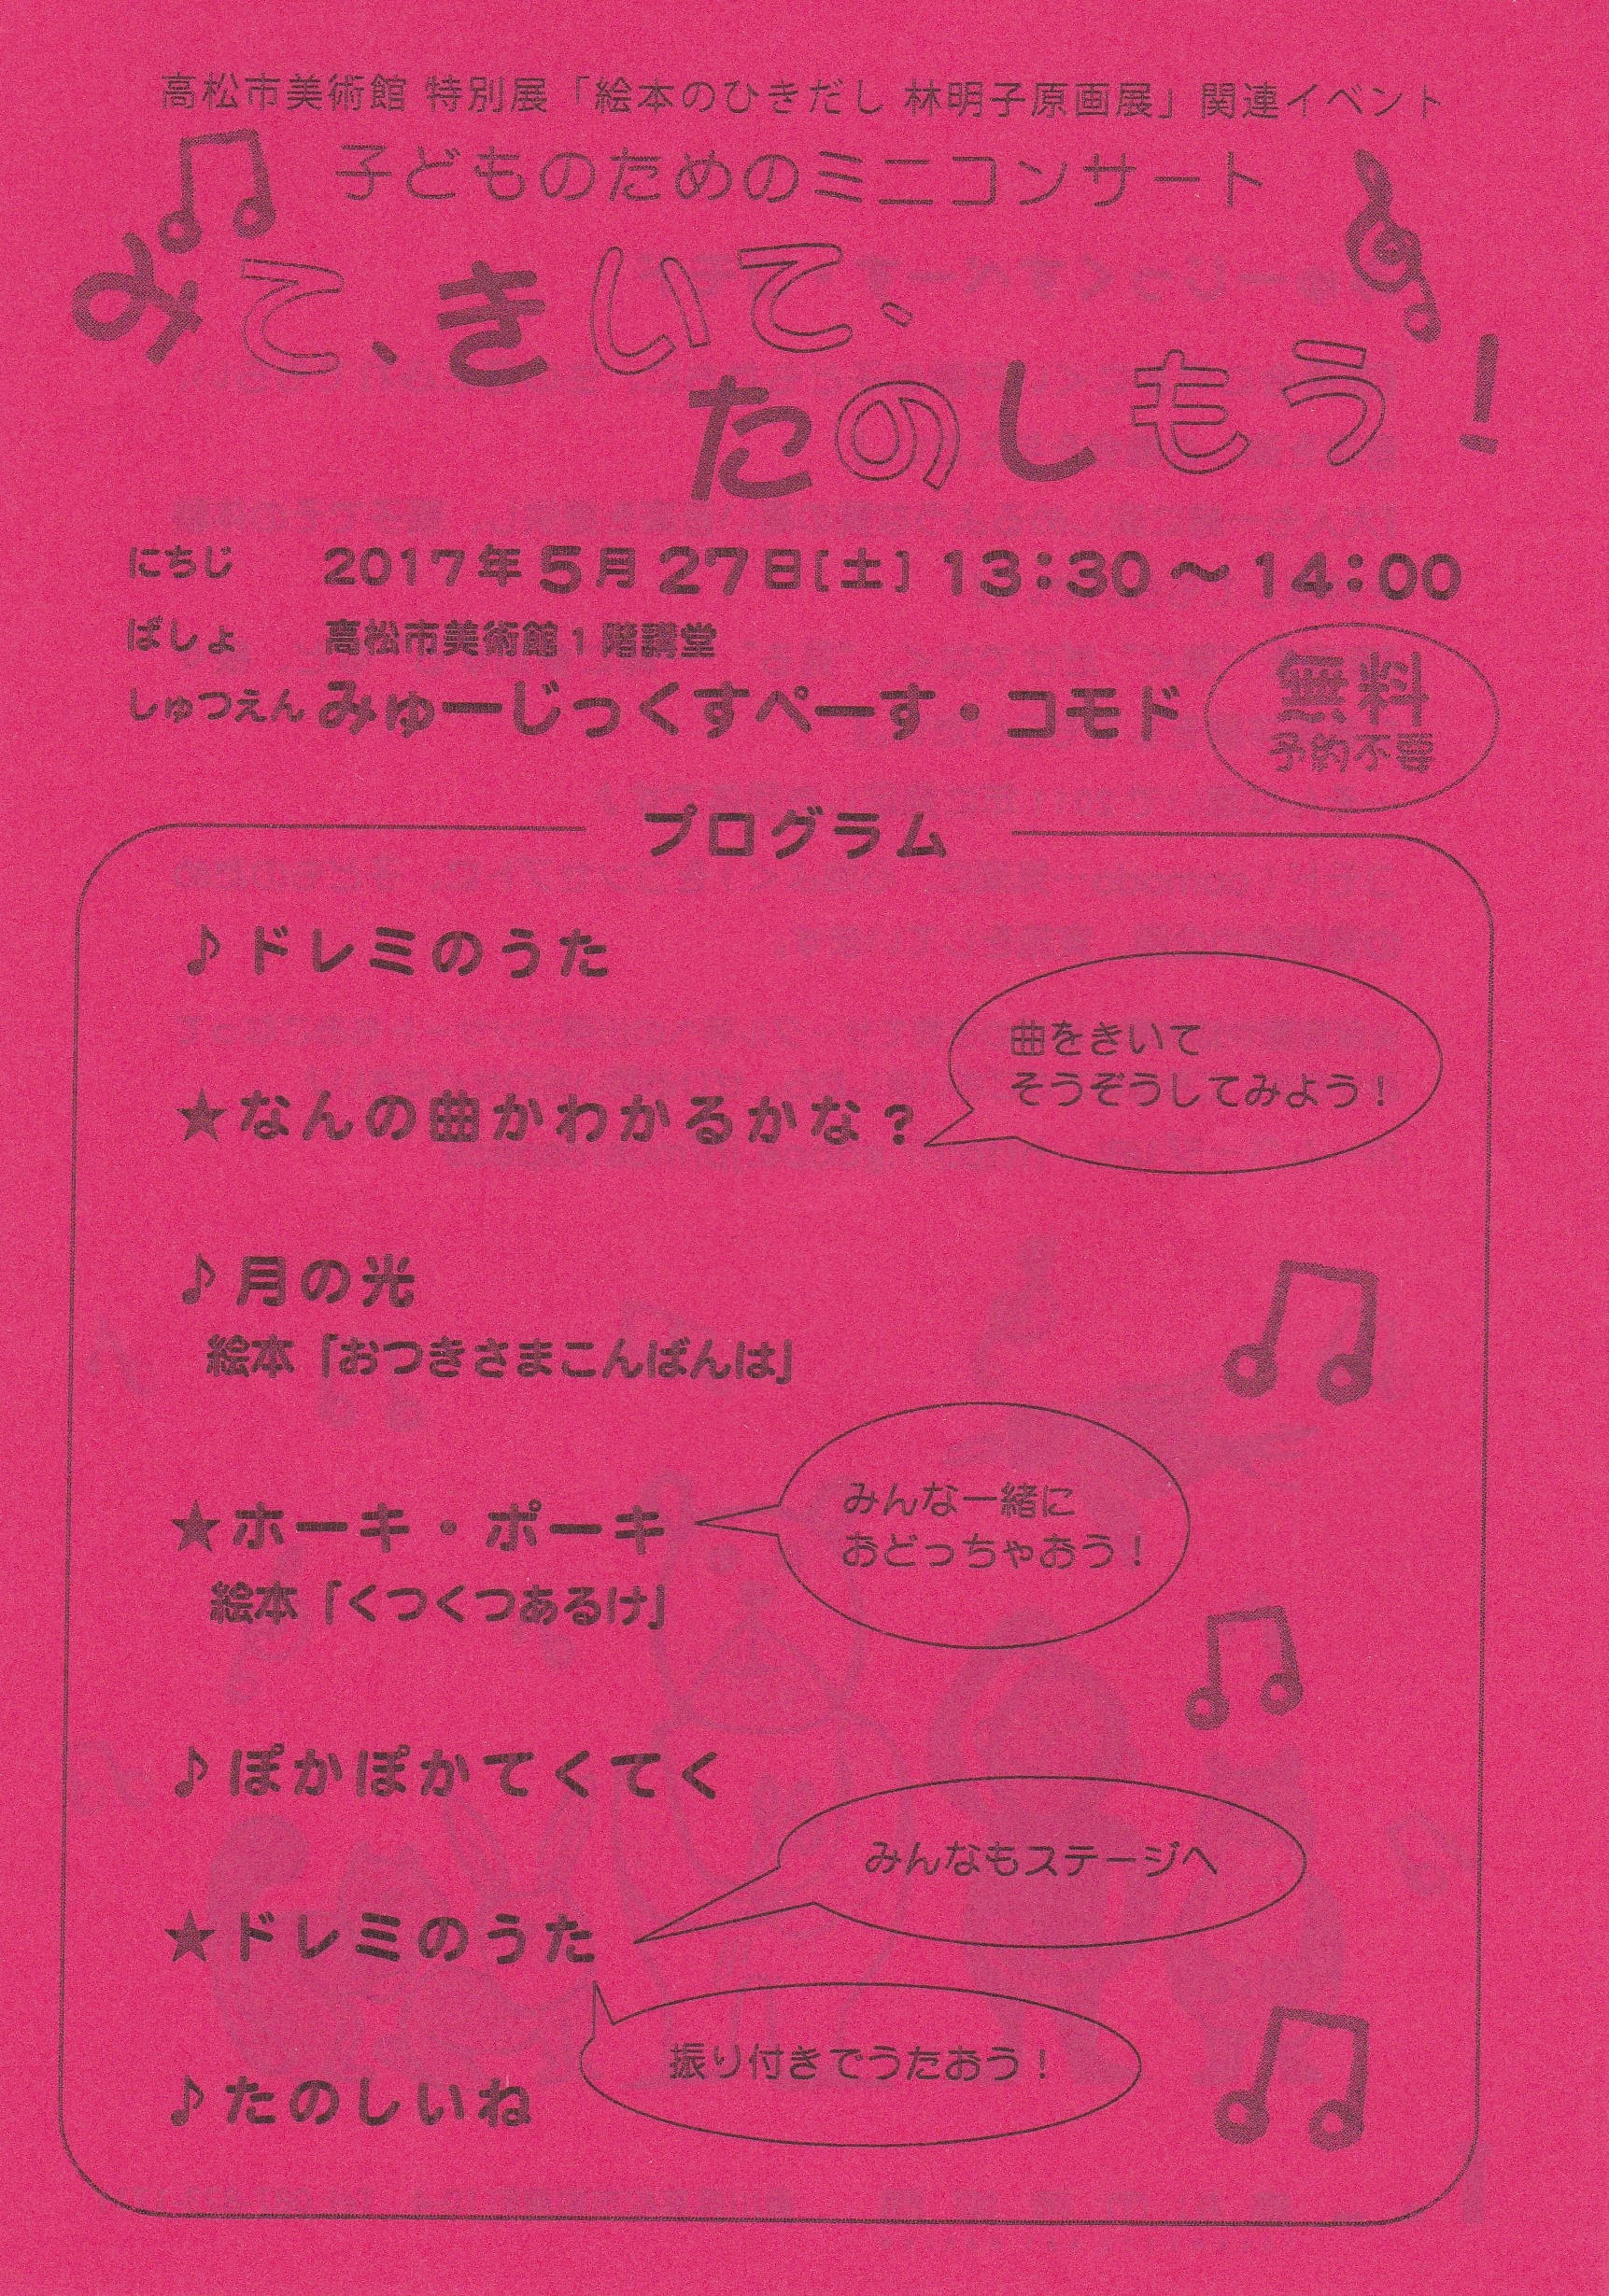 高松市美術館 特別展「絵本のひきだし 林明子原画展」関連イベント
子どものためのミニコンサート
みて、きいて、
たのしもう！
にちじ 2017年5月27日［土］13：30～14：00
ばしょ 高松市美術館1階講堂
しゅつえん みゅーじっくすぺーす・コモド
無料
予約不要
プログラム
♪ドレミのうた
曲をきいて
そうぞうしてみよう！
★なんの曲かわかるかな？
♪月の光
絵本「おつきさまこんばんは」
★ホーキ・ポーキ
みんな一緒に
おどっちゃおう！
絵本「くつくつあるけ」
♪ぽかぽかてくてく
みんなもステージへ
★ドレミのうた
振り付きでうたおう！
♪たのしいね